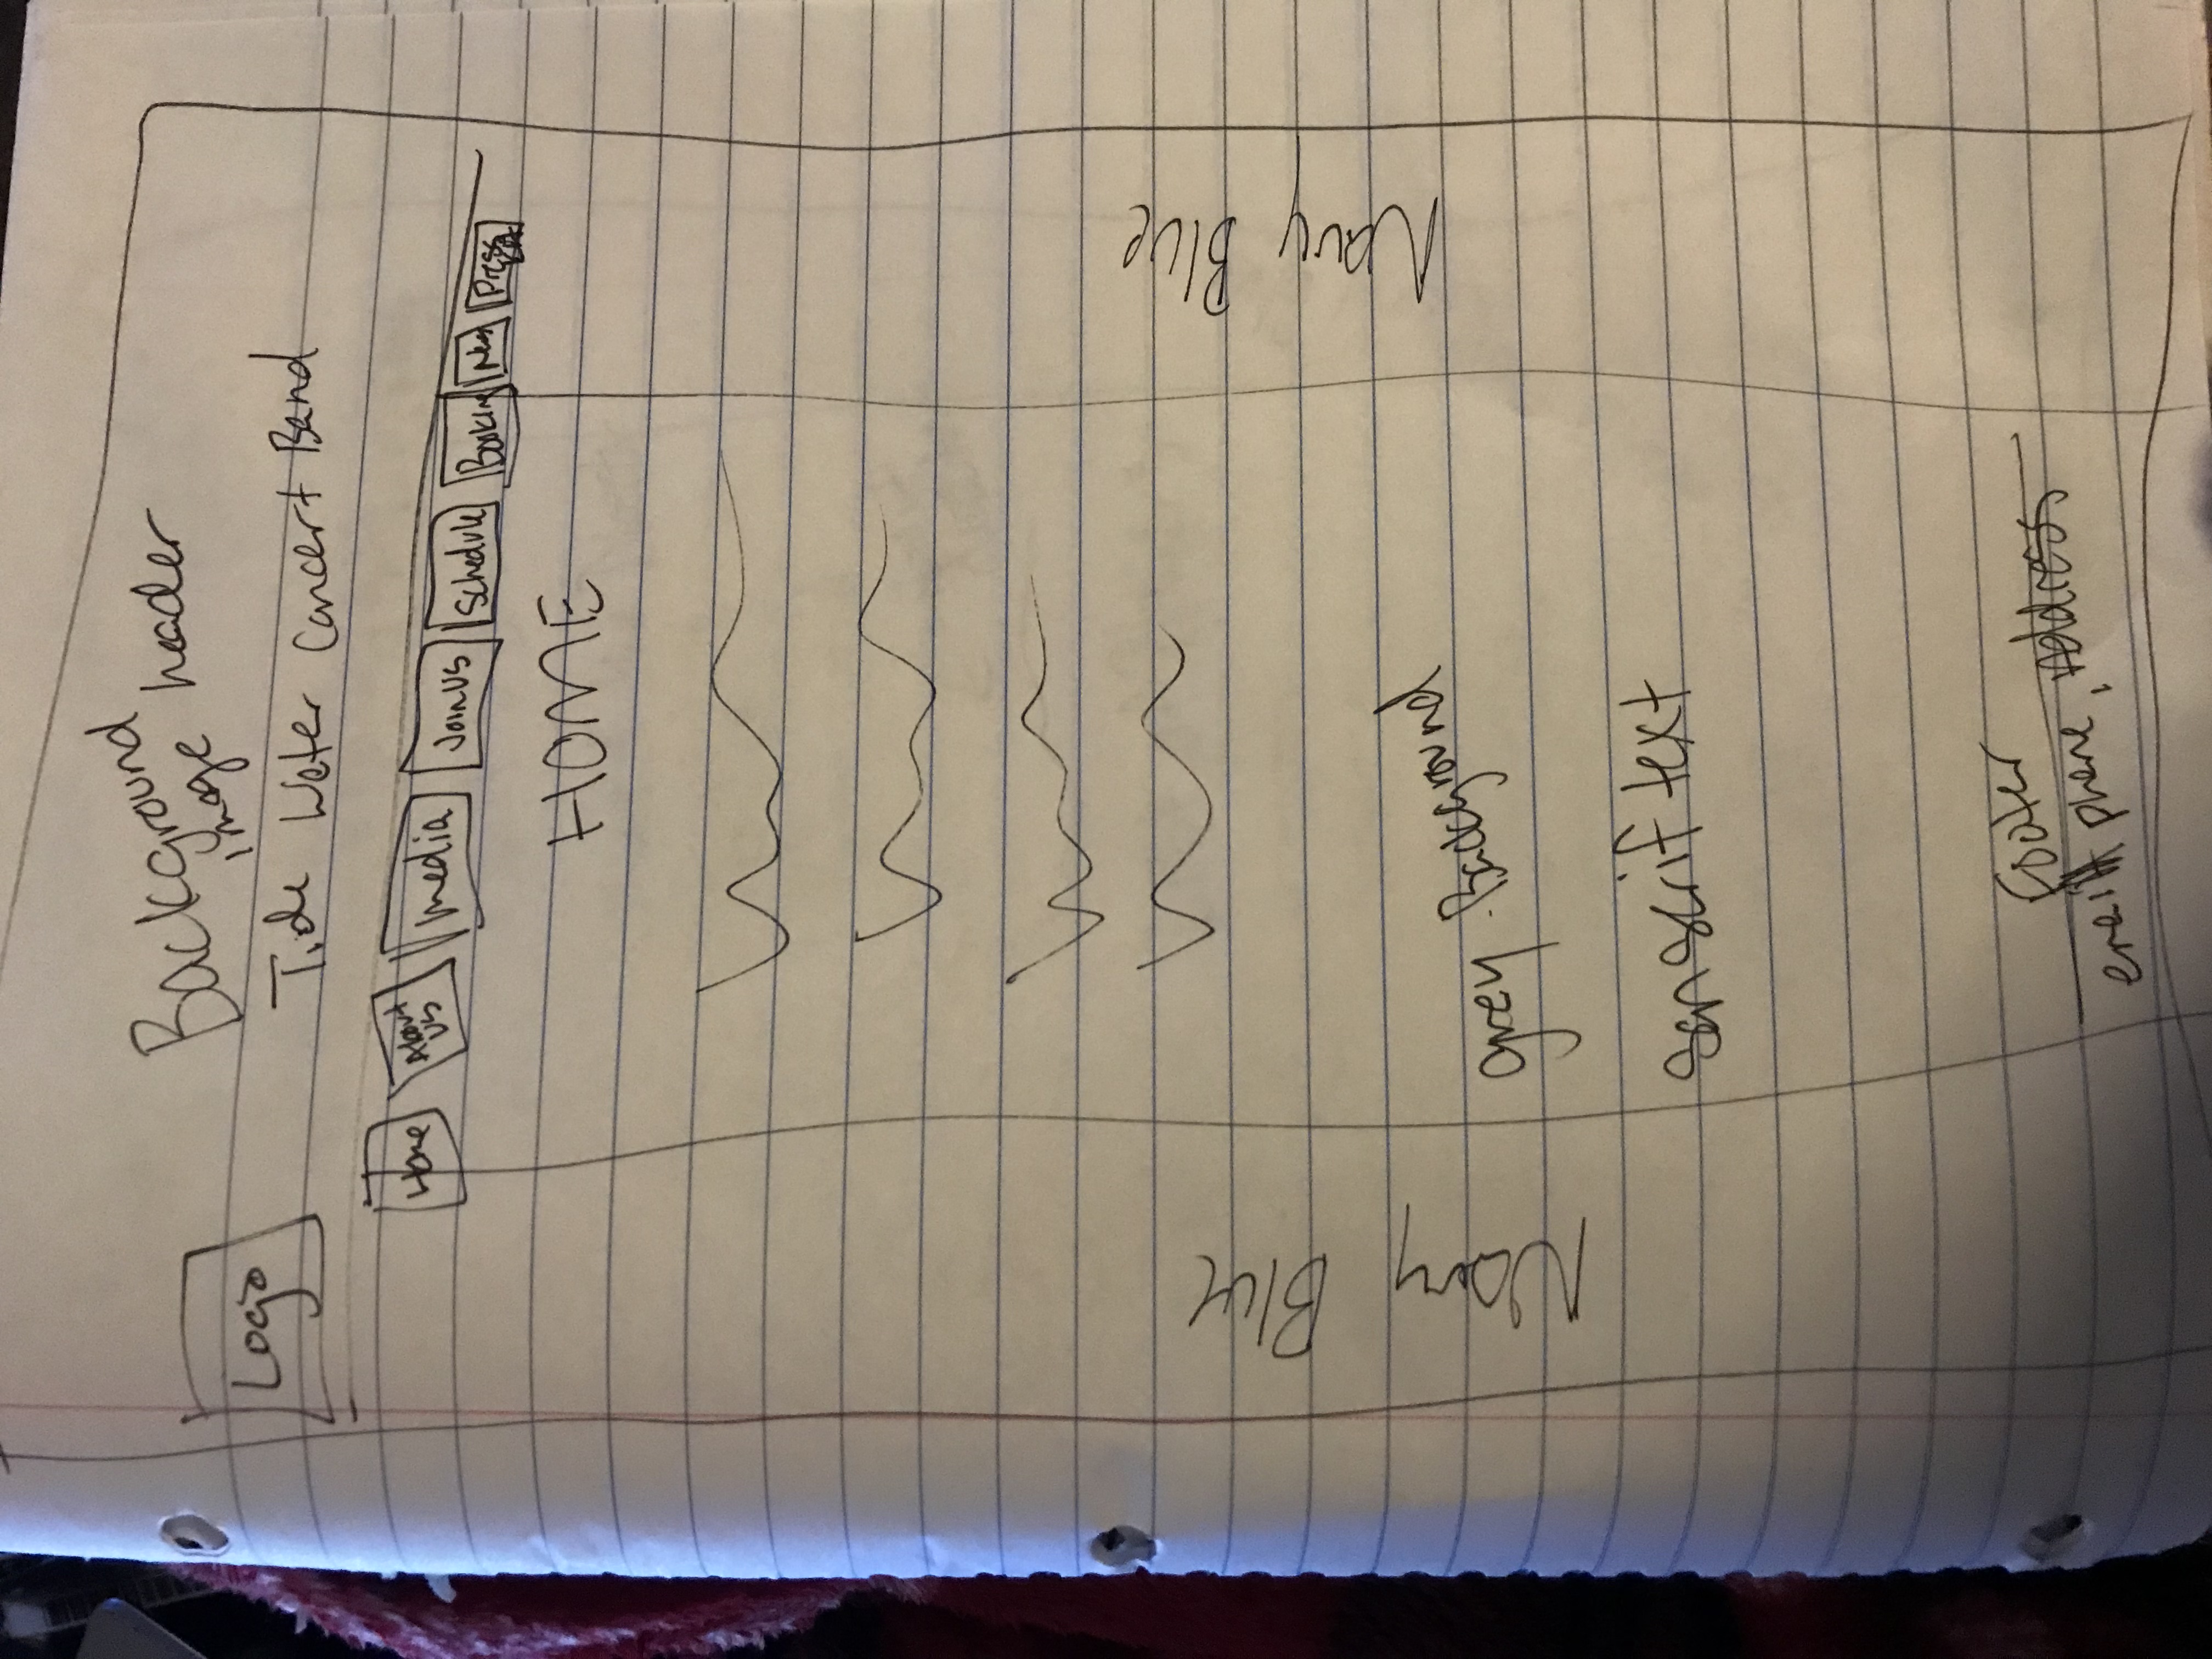 Background
image header
Logo
Tide Water Concert Band
Home
About
US
Media
Join US
Schedule
Booking
Press
HOME
Navy Blue
Navy Blue
grey Background
sanserif text
Footer
email phone, Address